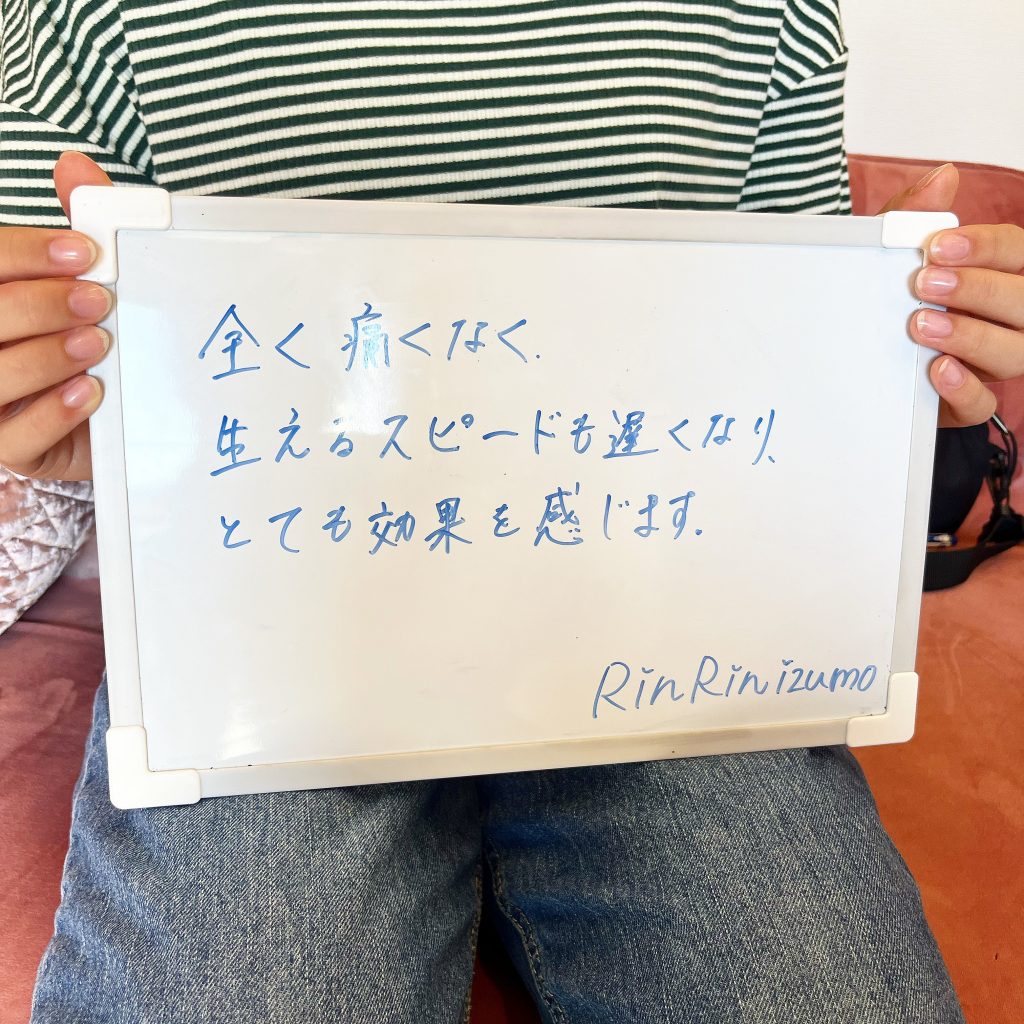 全く痛くなく.
生えるスピードも遅くなり、
とても効果を感じます.
RinRinizumo